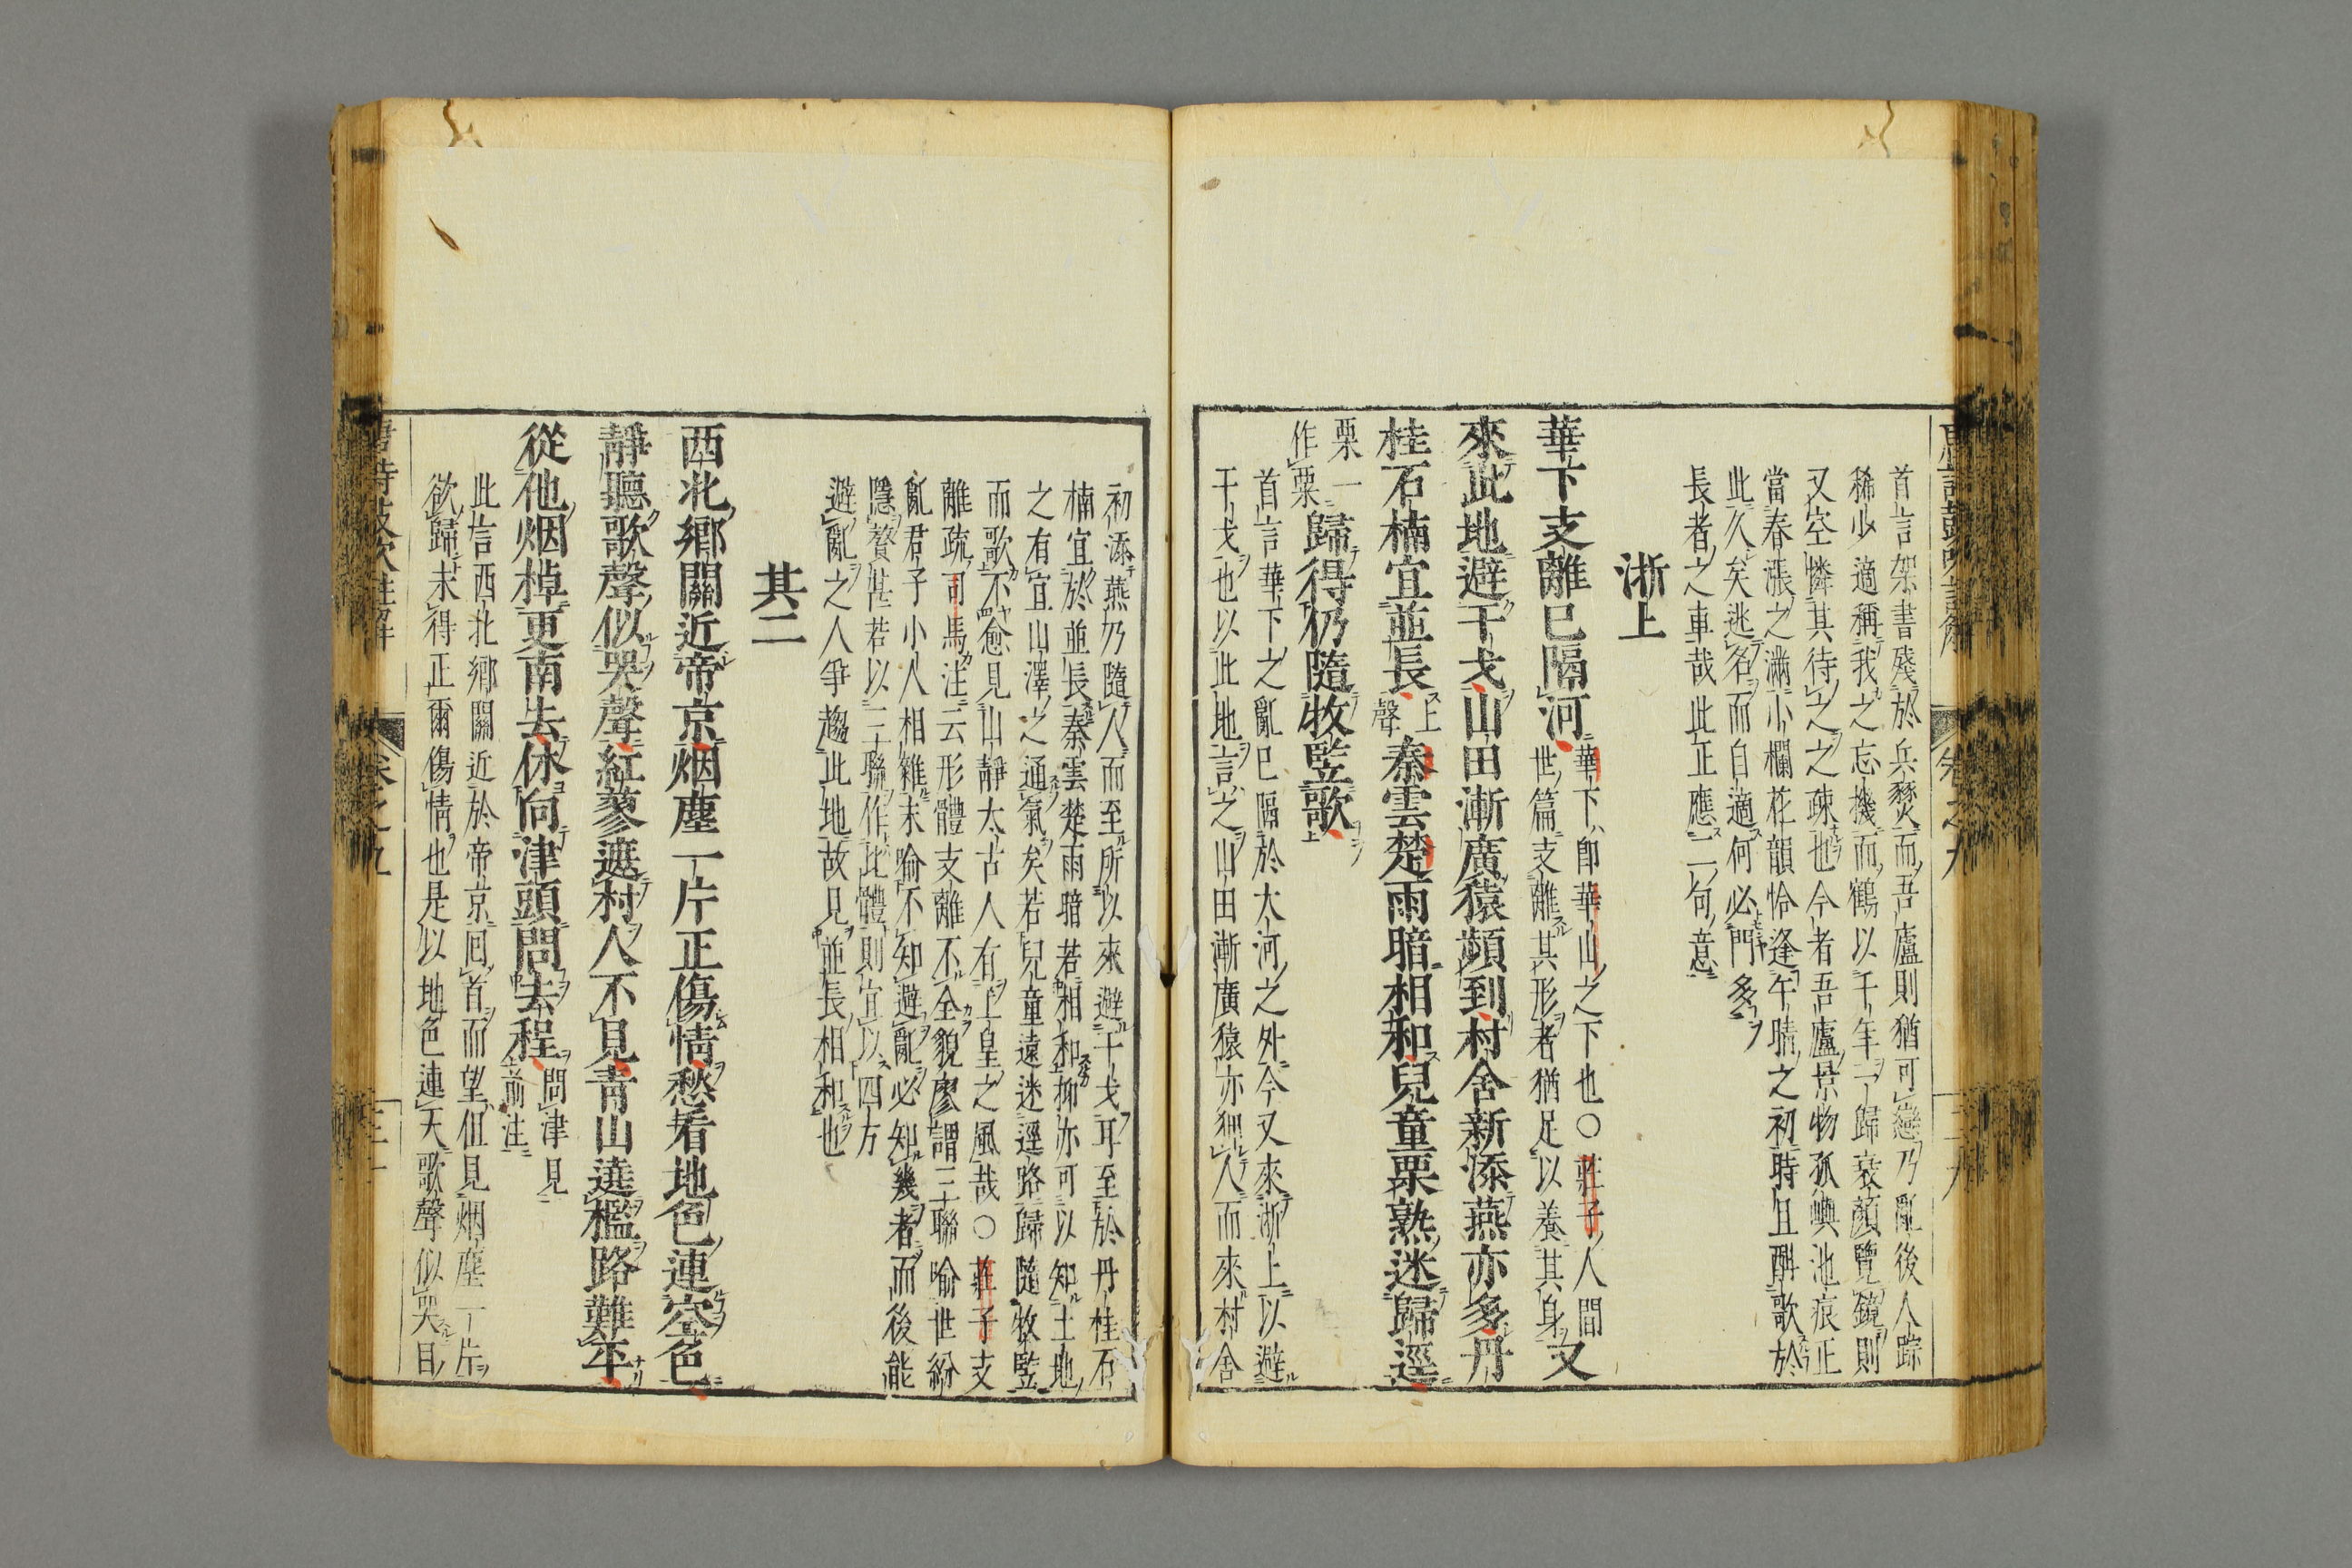 首言架書殘於兵燹而吾廬則猶可戀乃亂後人踪
稀少適稱我之忘機而鶴以千年一歸衰顏覽鏡則
又空憐其待之之疎也今者吾廬景物孤嶼池痕正
當春漲之滿小欄花韻恰逢午晴之初時且酣歌於
此久矣逃名而自適何必門多
長者之車哉此正應二句意
浙上
華下支離已隔河
華下即華山之下也○莊子人間
世篇支離其形者猶足以養其身
又
來此地避干戈山田漸廣猿頻到村舍新添燕亦多丹
桂石楠宜並長
上
聲
秦雲楚雨暗相和兒童栗熟迷歸逕
栗一
作粟
歸得仍隨牧監歌
首言華下之亂已隔於大河之外今又來浙上以避
干戈也以此地言之山田漸廣猿亦狎人而來村舍
初添燕乃隨人而至所以來避干戈耳至於丹桂石
楠宜於並長秦雲楚雨暗若相和抑亦可以知土地
之有宜山澤之通氣矣若兒童遠迷逕路歸隨牧監
而歌不愈見山靜太古人有上皇之風哉○莊子支
離疏司馬注云形體支離不全貌廖謂三聯喻世紛
亂君子小人相雜末喻不知避亂必知幾者而後能
隱贅甚若以三聯作比體則宜以四方
避亂之人爭趨此地故見並長相和也
其二
西北鄉關近帝京烟塵一片正傷情愁看地色連空色
靜聽歌聲似哭聲紅蓼遮村人不見青山遶檻路難平
從他烟棹更南去休向津頭問去程
問津見
前注
此言西北鄉關近於帝京回首而望但見烟塵一片
欲歸未得正爾傷情也是以地色連天歌聲似哭目
唐詩鼓吹註解
卷之九